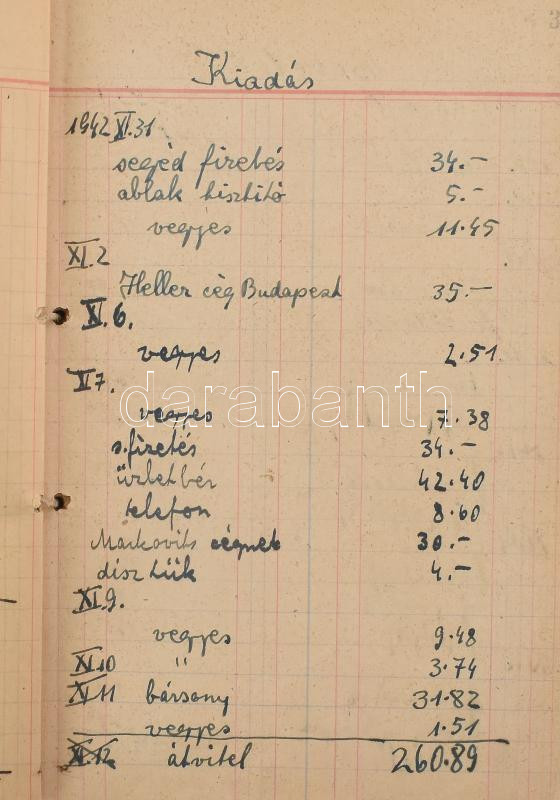 Kiadás
1942 XI.31
segéd fizetés 34.-
ablak tisztitó 5.-
vegyes 11.45
XI.2
Heller cég Budapest 35.-
XI.6.
vegyes 2.51
XI 7.
darabanth
vegyes 7.38
s.fizetés 34.-
üzletbér 42.40
telefon 8.60
Markovits cégnek 30.-
disz tük 4.-
XI.9.
vegyes 9.48
XI.10 " 3.74
XI 11 bársony 31.82
vegyes 1.51
XI.12 átvitel 260.89